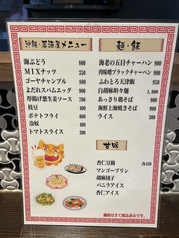 沖縄・居酒屋メニュー
海ぶどう
MIXナッツ
ゴーヤチャンプル
よだれスパムエッグ
厚揚げ葱生姜ソース 700
枝豆
ポテトフライ 600
冷奴 400
トマトスライス 300
麺・飯
海老の五目チャーハン 900
肉味噌ブラックチャーハン 900
ふわとろ天津飯
白胡麻坦々麺
あっさり鶏そば 900
海鮮上海焼きそば
ライス 300
甘味
杏仁豆腐 各450
マンゴープリン
胡麻団子
バニラアイス
杏仁アイス